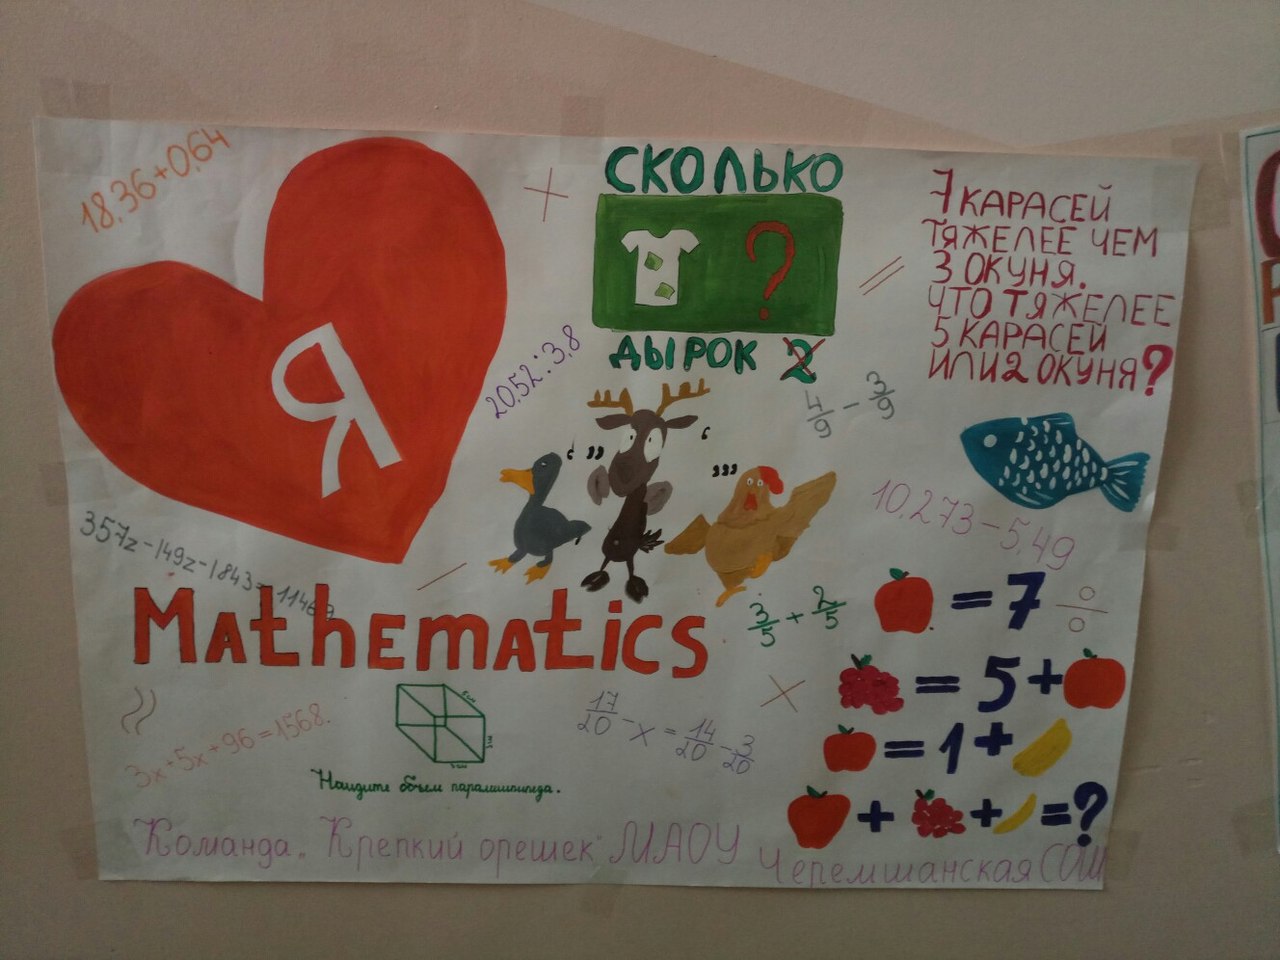 18,36+0,64
Я
20,52:3,8
СКОЛЬКО
?
ДЫРОК 2
7 КАРАСЕЙ
ТЯЖЕЛЕЕ ЧЕМ
3 ОКУНЯ.
ЧТО ТЯЖЕЛЕЕ
5 КАРАСЕЙ
ИЛИ 2 ОКУНЯ?
4/9 - 3/9
‘ ,, ‘
,,,
10,273-5,49
357z-149z-1843=11469
MAthEmAtics
3/5 + 2/5
= 7
= 5 +
= 1 +
+ + = ?
3x+5x+96=1568.
17/20 - x = 14/20 - 3/20
Найдите объем параллепипеда.
Команда „Крепкий орешек" МАОУ Черемшанская СОШ